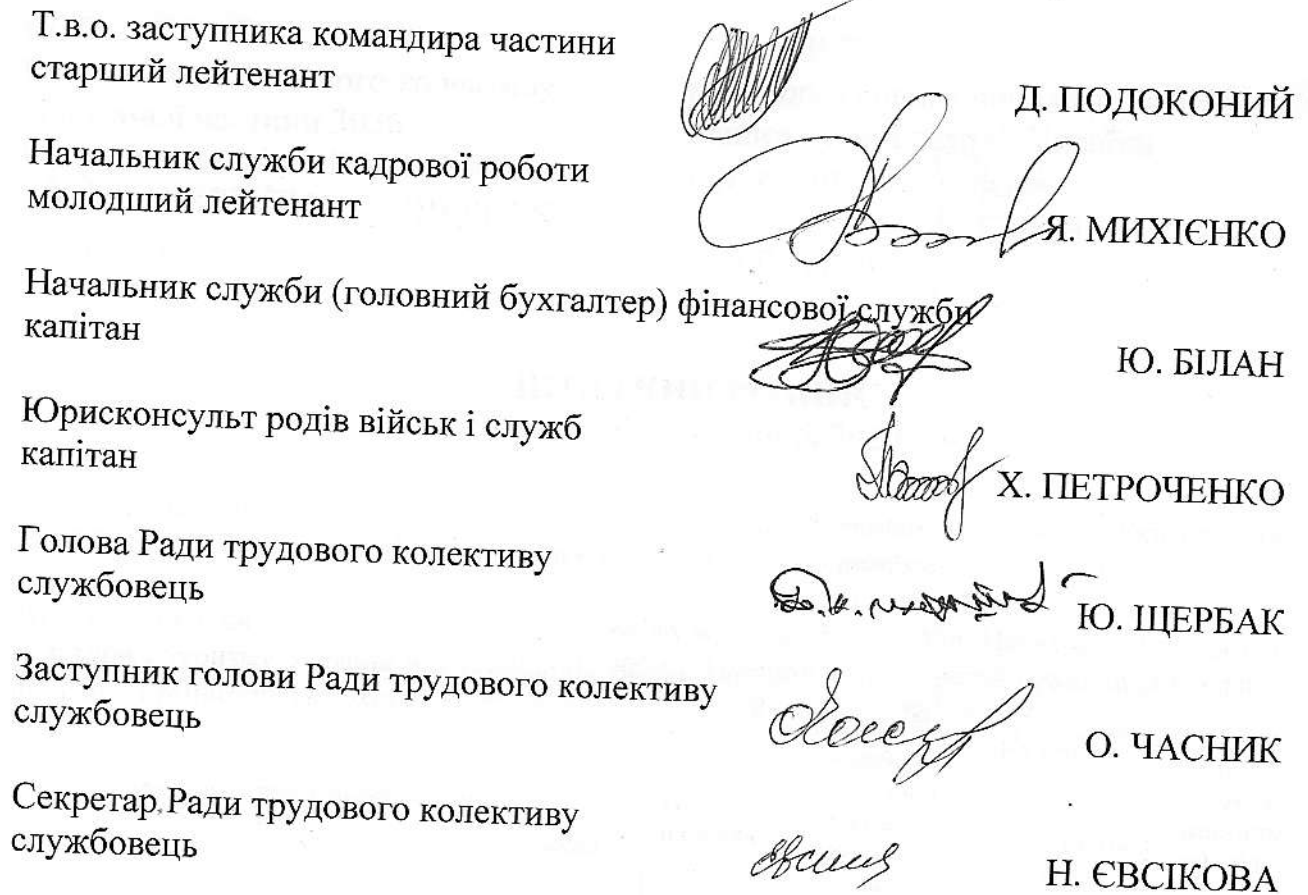 Т.в.о. заступника командира частини
старший лейтенант
Д. ПОДОКОНИЙ
Начальник служби кадрової роботи
молодший лейтенант
Я. МИХІЄНКО
Начальник служби (головний бухгалтер) фінансової служби
капітан
Ю. БІЛАН
Юрисконсульт родів військ і служб
капітан
Х. ПЕТРОЧЕНКО
Голова Ради трудового колективу
службовець
Ю. ЩЕРБАК
Заступник голови Ради трудового колективу
службовець
О. ЧАСНИК
Секретар Ради трудового колективу
службовець
Н. ЄВСІКОВА